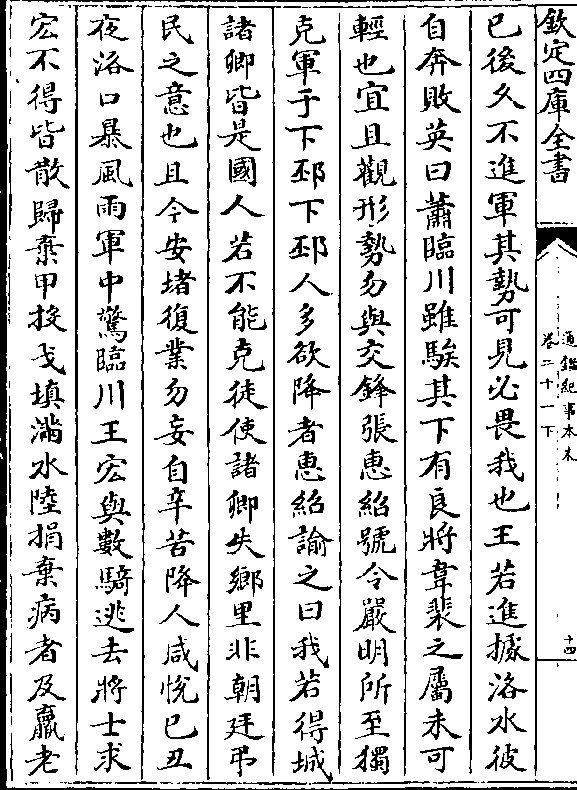 欽定四庫全書
通鑑紀事本末
卷二十一下
十四
已後久不進軍其勢可見必畏我也王若進據洛水彼
自奔敗英曰蕭臨川雖騃其下有良將韋裴之屬未可
輕也宜且觀形勢勿與交鋒張惠紹號令嚴明所至獨
克軍于下邳下邳人多欲降者惠紹諭之曰我若得城
諸卿皆是國人若不能克徒使諸卿失鄉里非朝廷弔
民之意也且今安堵復業勿妄自辛苦降人咸悅已丑
夜洛口暴風雨軍中驚臨川王宏與數騎逃去將士求
宏不得皆散歸棄甲投戈填滿水陸捐棄病者及羸老